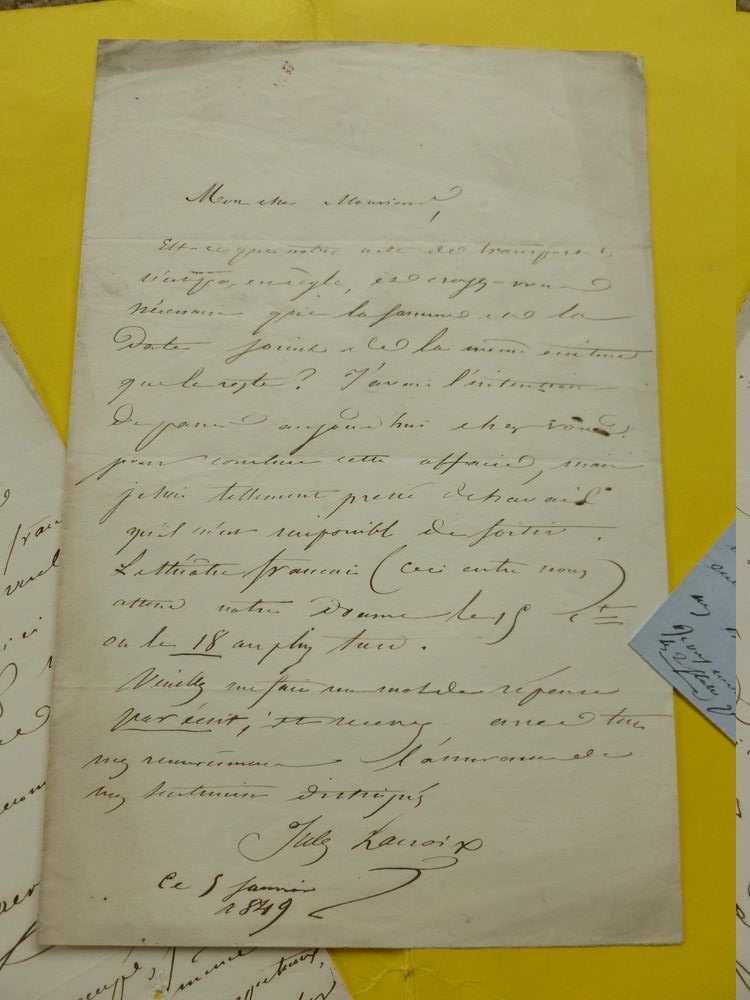 Mon cher Monsieur,
Est-ce que notre acte de transport
n'est pas en règle, et croyez-vous
nécessaire que la somme et la
date soient de la même écriture
que le reste ? J'avais l'intention
de passer aujourd'hui chez vous
pour conclure cette affaire, mais
je suis tellement pressé de travail
qu'il m'est impossible de sortir.
Le théâtre français (ceci entre nous)
attend notre Drame le 15 ct
ou le 18 au plus tard.
Veuillez me faire un mot de réponse
par écrit, et recevez avec tous
mes remerciemens l'assurance de
mes sentimens distingués
Jules Lacroix
Ce 5 Janvier
1849